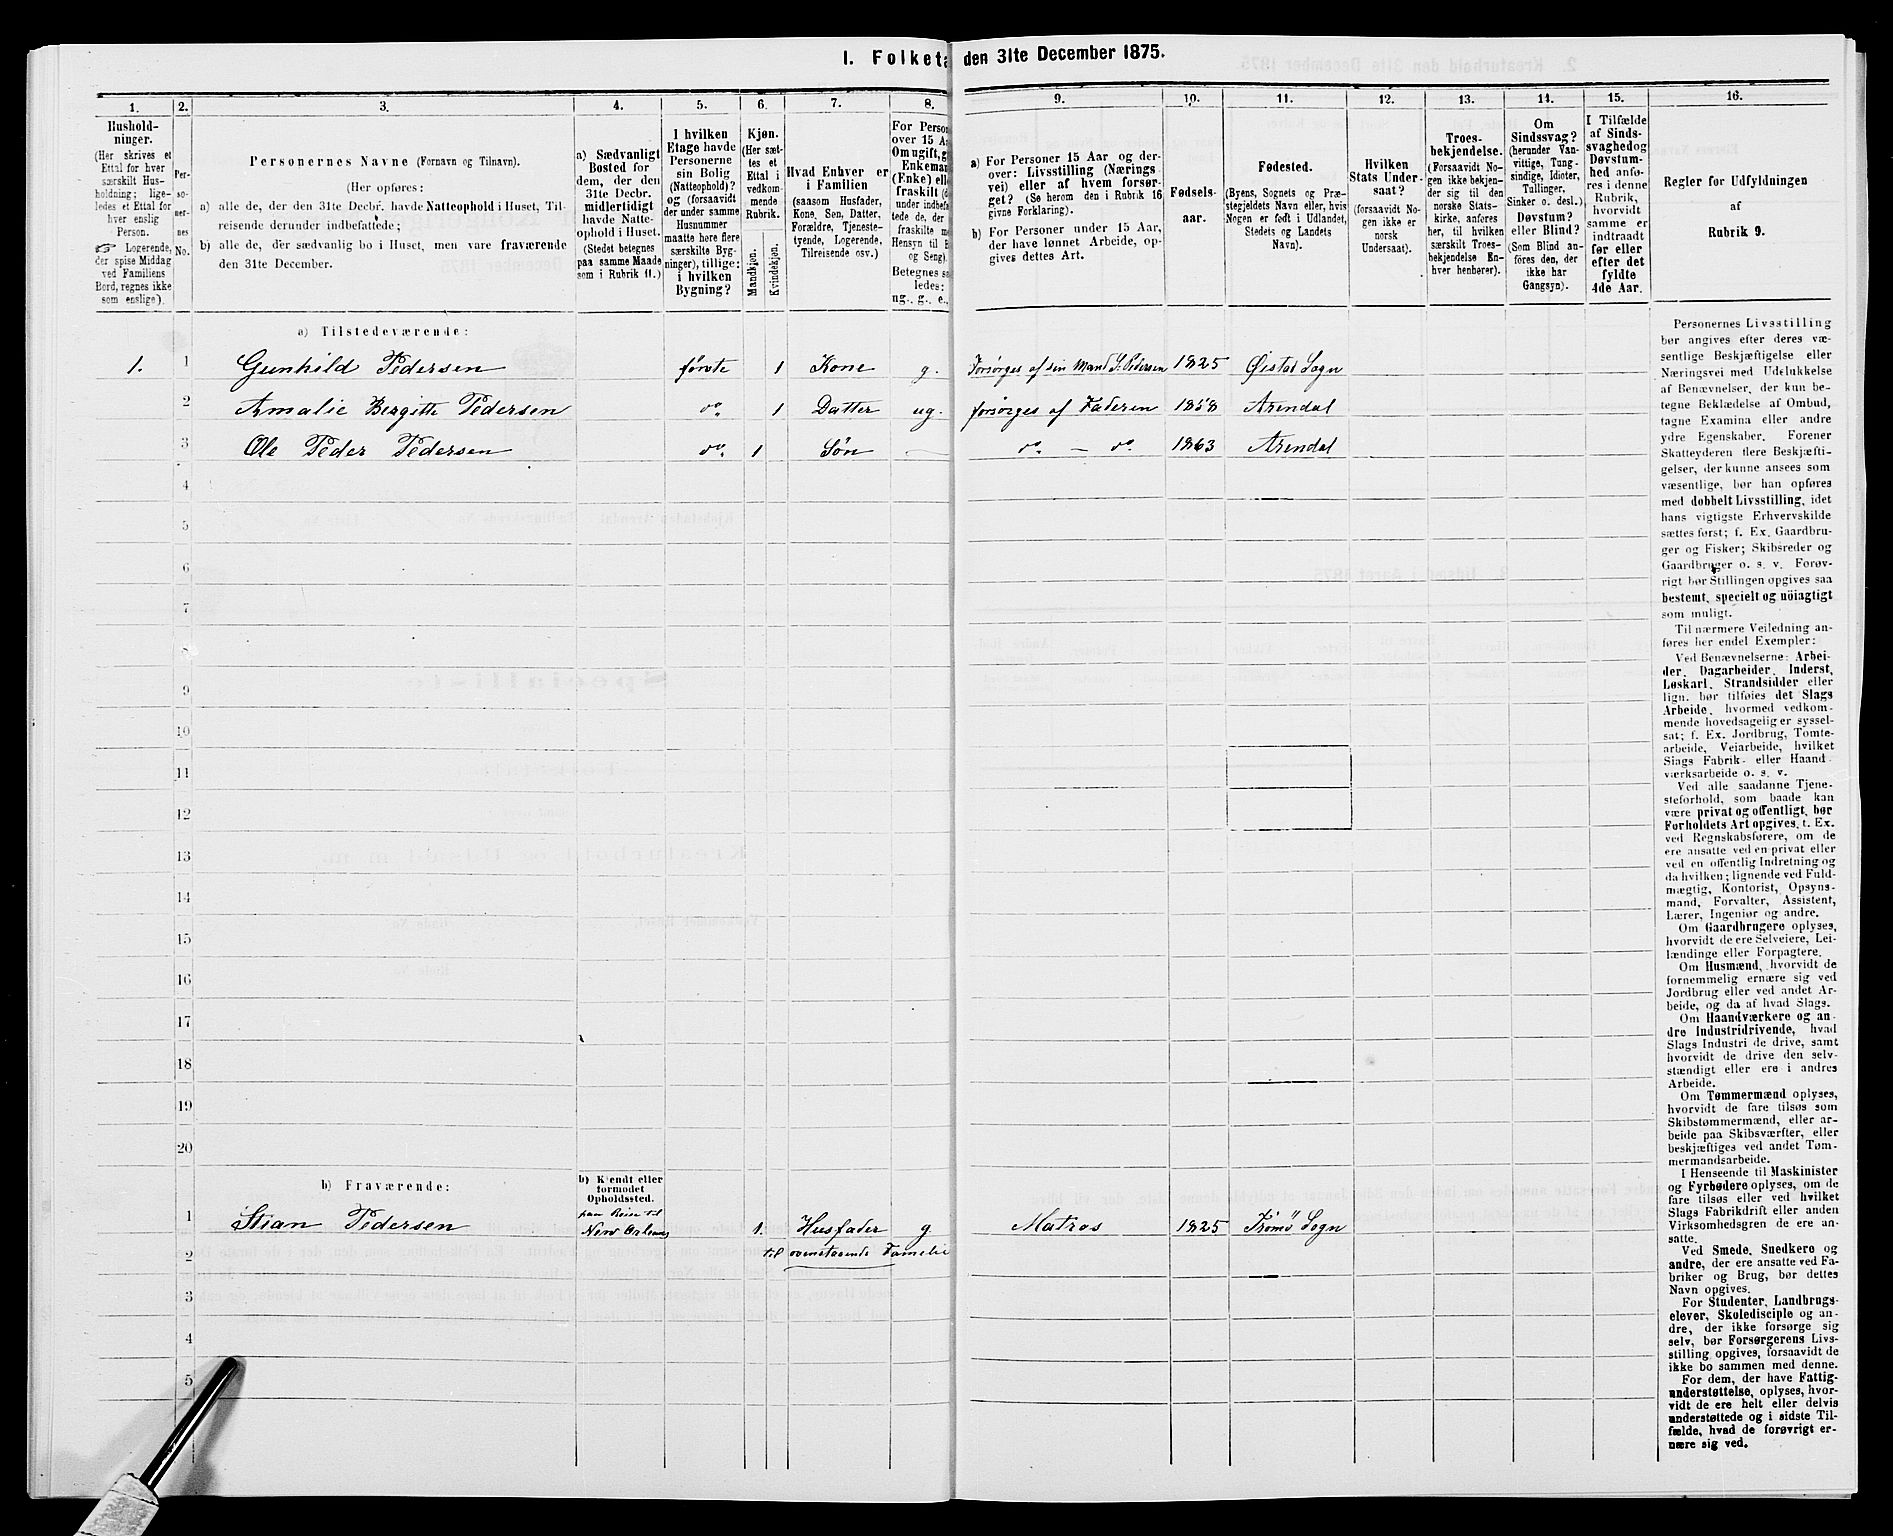 I. Folketa den 31te December 1875.
1. 2. 3. 4. 5. 6. 7. 8. 9. 10. 11. 12. 13. 14. 15. 16.
Hushold-
ninger.
(Her skrives et
Ettal for hver
særskilt Hus-
holdning; lige-
ledes et Ettal for
hver enslig
Person.
☞ Logerende,
der spise Middag
ved Familiens
Bord, regnes ikke
som enslige).
Per-
so-
ner-
nes
No.
Personernes Navne (Fornavn og Tilnavn).
(Her opføres:
a) alle de, der den 31te Decbr. havde Natteophold i Huset, Til-
reisende derunder indbefattede;
b) alle de, der sædvanlig bo i Huset, men vare fraværende
den 31te December.
a) Sædvanligt
Bosted for
dem, der den
31te Decbr.
midlertidigt
havde Natte-
ophold i Huset.
(Stedet betegnes
paa samme Maade
som i Rubrik 11.)
I hvilken
Etage havde
Personerne
sin Bolig
(Natteophold)?
og (forsaavidt
der under samme
Husnummer
maatte høre flere
særskilte Byg-
ninger), tillige:
i hvilken
Bygning?
Kjøn.
(Her sæt-
tes et
Ettal i
vedkom-
mende
Rubrik.
Mandkjøn.
Kvindekjøn.
Hvad Enhver er
i Familien
(saasom Husfader,
Kone, Søn, Datter,
Forældre, Tjeneste-
tyende, Logerende,
Tilreisende osv.)
For Person
over 15 Aa
Om ugift, g
Enkeman
(Enke) elle
fraskilt (d
under indbefa
tede de, der
fraskilte m
Hensyn til B
og Seng).
Betegnes sa
ledes:
ug., g., e.,
a) For Personer 15 Aar og der-
over: Livsstilling (Nærings
vei) eller af hvem forsør-
get? (Se herom den i Rubrik 16
givne Forklaring).
b) For Personer under 15 Aar,
der have lønnet Arbeide, op-
gives dettes Art.
Fødsels-
aar.
Fødested.
(Byens, Sognets og Præ-
stegjeldets Navn eller, hvis
Nogen er født i Udlandet,
Stedets og Landets
Navn).
Hvilken
Stats Under-
saat?
(forsaavidt No-
gen ikke er
norsk
Undersaat).
Troes-
bekjendelse.
(Forsaavidt No-
gen ikke bekjen-
der sig til den
norske Stats-
kirke, anføres
her, til hvilken
særskilt Troes-
bekjendelse En-
hver henhører).
Om
Sindssvag?
(herunder Van-
vittige, Tung-
sindige, Idioter,
Tullinger,
Sinker o. desl.)
Døvstum?
eller Blind?
(Som Blind an-
føres den, der
ikke har
Gangsyn).
I Tilfælde
af Sinds-
svaghed og
Døvstum-
hed anfø-
res i denne
Rubrik,
hvorvidt
samme er
indtraadt
før eller
efter det
fyldte
4de Aar.
Regler for Udfyldningen
af
Rubrik 9.
a) Tilstedeværende:
1. 1 Gunhild Pedersen første 1 Kone g. Forsørges af sin Mand S. Pedersen 1825 Øistad Sogn
2 Amalie Bergitte Pedersen do. 1 Datter ug. forsørges af Faderen 1858 Arendal
3 Ole Peder Pedersen do. 1 Søn do. — do. 1863 Arendal
4
5
6
7
8
9
10
11
12
13
14
15
16
17
18
19
20
b) Fraværende:
b) Kjendt eller
formodet
Opholdssted.
1 Stian Pedersen paa Reise til
New Orleans 1. Husfader g Matros 1825 Tromø Sogn
til ovenstaaende Famelie
2
3
4
5
Personernes Livsstilling
bør angives efter deres væ-
sentlige Beskjæftigelse eller
Næringsvei med Udelukkelse
af Benævnelser, der kun be-
tegne Beklædelse af Ombud,
tagne Examina eller andre
ydre Egenskaber. Forener
Skatteyderen flere Beskjæfti-
gelser, der kunne ansees som
væsentlige, bør han opføres
med dobbelt Livsstilling, idet
hans vigtigste Erhvervskilde
sættes først; f. Ex. Gaardbru-
ger og Fisker; Skibsreder og
Gaardbruger o. s. v. Forøv-
rigt bør Stillingen opgives saa
bestemt, specielt og nøiagtigt
som muligt.
Til nærmere Veiledning an-
føres her endel Exempler:
Ved Benævnelserne: Arbei-
der, Dagarbeider, Inderst,
Løskarl, Strandsidder eller
lign. bør tilføies det Slags
Arbeide, hvormed vedkom-
mende hovedsagelig er syssel-
sat; f. Ex. Jordbrug, Tomte-
arbeide, Veiarbeide, hvilket
Slags Fabrik- eller Haand-
værksarbeide o. s. v.
Ved alle saadanne Tjene-
steforhold, som baade kan
være privat og offentligt, bør
Forholdets Art opgives, t. Ex.
ved Regnskabsførere, om de
ere ansatte ved en privat eller
ved en offentlig Indretning og
da hvilken; lignende ved Fuld-
mægtig, Kontorist, Opsyns-
mand, Forvalter, Assistent,
Lærer, Ingeniør og andre.
Om Gaardbrugere oplyses,
hvorvidt de ere Selveiere, Lei-
lændinge eller Forpagtere.
Om Husmænd, hvorvidt de
fornemmelig ernære sig ved
Jordbrug eller ved andet Ar-
beide, og da af hvad Slags.
Om Haandværkere og an-
dre Industridrivende, hvad
Slags Industri de drive, samt
hvorvidt de drive den selv-
stændigt eller ere i andres
Arbeide.
Om Tømmermænd oplyses,
hvorvidt de fare tilsøs som
Skibstømmermænd, eller ar-
beide paa Skibsværfter, eller
beskjæftiges ved andet Tøm-
mermandsarbeide.
I Henseende til Maskinister
og Fyrbødere oplyses, om de
fare tilsøs eller ved hvilket
Slags Fabrikdrift eller anden
Virksomhedsgren de ere an-
satte.
Ved Smede, Snedkere og
andre, der ere ansatte ved Fa-
briker og Brug, bør dettes
Navn opgives.
For Studenter, Landbrugs-
elever, Skoledisciple og an-
dre, der ikke forsørge sig
selv, bør Forsørgerens Livs-
stilling opgives, forsaavidt de
ikke bo sammen med denne.
For dem, der have Fattig-
understøttelse, oplyses, hvor-
vidt de ere helt eller delvis
understøttede og i sidste Til-
fælde, hvad de forøvrigt er-
nære sig ved.